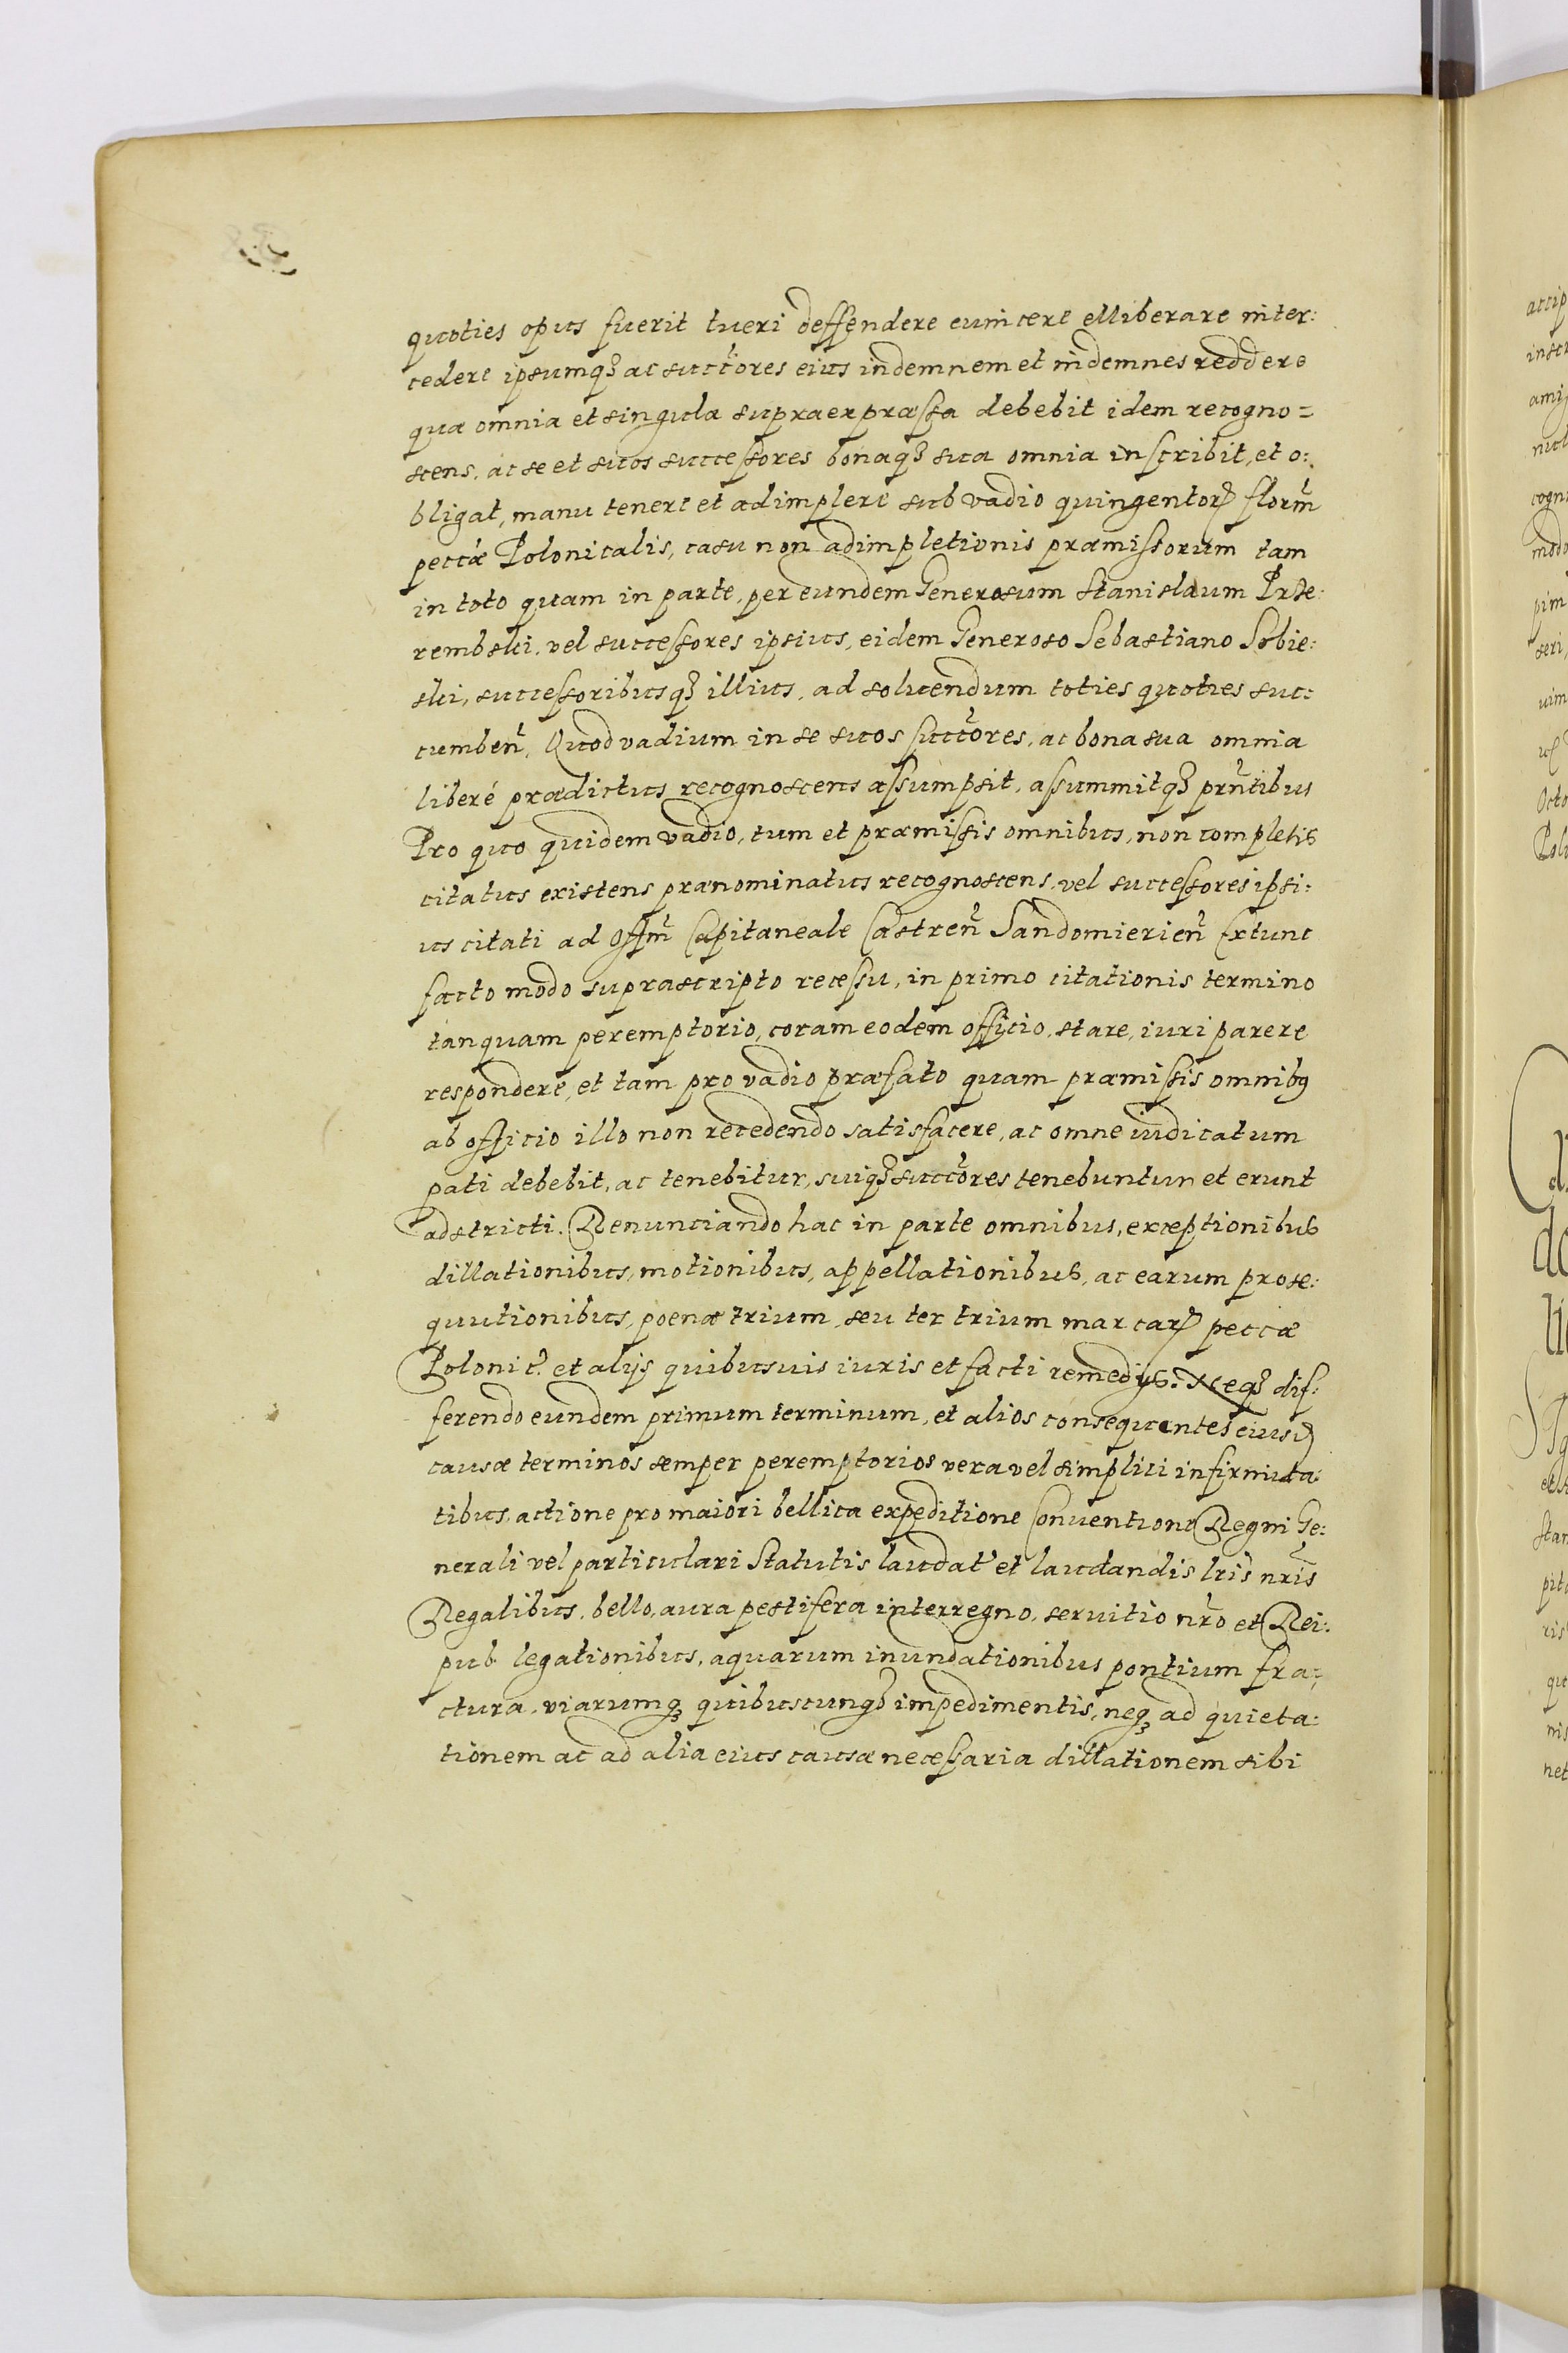 quoties opus fuerit tueri deffendere euincere elliberare inter:
cedere ipsumq₃ ac succ̃tores eius indemnem et indemnes reddere
quæ omnia et singula supraexpræssa debebit idem recogno=
scens, ac se et suos successores bonaq₃ sua omnia inscribit, et o:
bligat, manu tenere et adimplere sub vadio quingentorꝝ florm̃
peccæ Polonicalis, casu non adimpletionis præmissorum tam
in toto quam in parte, per eundem Generosum Stanislaum Prze:
rembski, vel successores ipsius, eidem Generoso Sebastiano Sobie:
ski, successoribusq₃ illius, ad soluendum toties quoties suc:
cumbeñ, Quod vadium in se suos succ̃tores, ac bona sua omnia
liberé prædictus recognoscens assumpsit, assummitq₃ prñtibus
Pro quo quidem vadio, tum et præmissis omnibus, non completis
citatus existens prænominatus recognoscens, vel successores ipsi:
us citati ad Offm̃ Capitaneale Castreñ Sandomierieñ Extunc
facto modo suprascripto recessu, in primo citationis termino
tanquam peremptorio, coram eodem officio, stare, iuri parere
respondere, et tam pro vadio præfato quam præmissis omnibꝰ
ab officio illo non recedendo satisfacere, ac omne iudicatum
pati debebit, ac tenebitur, suiq₃ succ̃tores tenebuntur et erunt
adstricti. Renunciando hac in parte omnibus, exceptionibus
dillationibus, motionibus, appellationibus, ac earum prose:
quutionibus, poenæ trium, seu ter trium marcarꝝ peccæ
Polonic̃. et alijs quibusuis iuris et facti remedijs. Neq₃ dif:
ferendo eundem primum terminum, et alios consequentes eiusd
causæ terminos semper peremptorios vera vel simplici infirmita:
tibus, actione pro maiori bellica expeditione Conuentione Regni Ge:
nerali vel particulari Statutis laudat̃ et laudandis lr̃is nr̃is
Regalibus, bello, aura pestifera interregno, seruitio nr̃o et Rei:
pub. legationibus, aquarum inundationibus pontium fra:
ctura, viarumq₃ quibuscunq₃ impedimentis, neq₃ ad quieta:
tionem ac ad alia eius causæ necessaria dillationem sibi